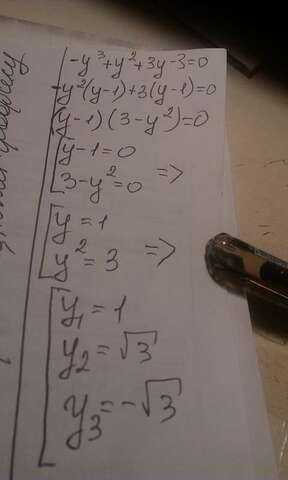 -y³+y²+3y-3=0
-y²(y-1)+3(y-1)=0
(y-1)(3-y²)=0
[y-1=0
3-y²=0 =>
[y=1
y²=3 =>
[y₁=1
y₂=√3
y₃=-√3